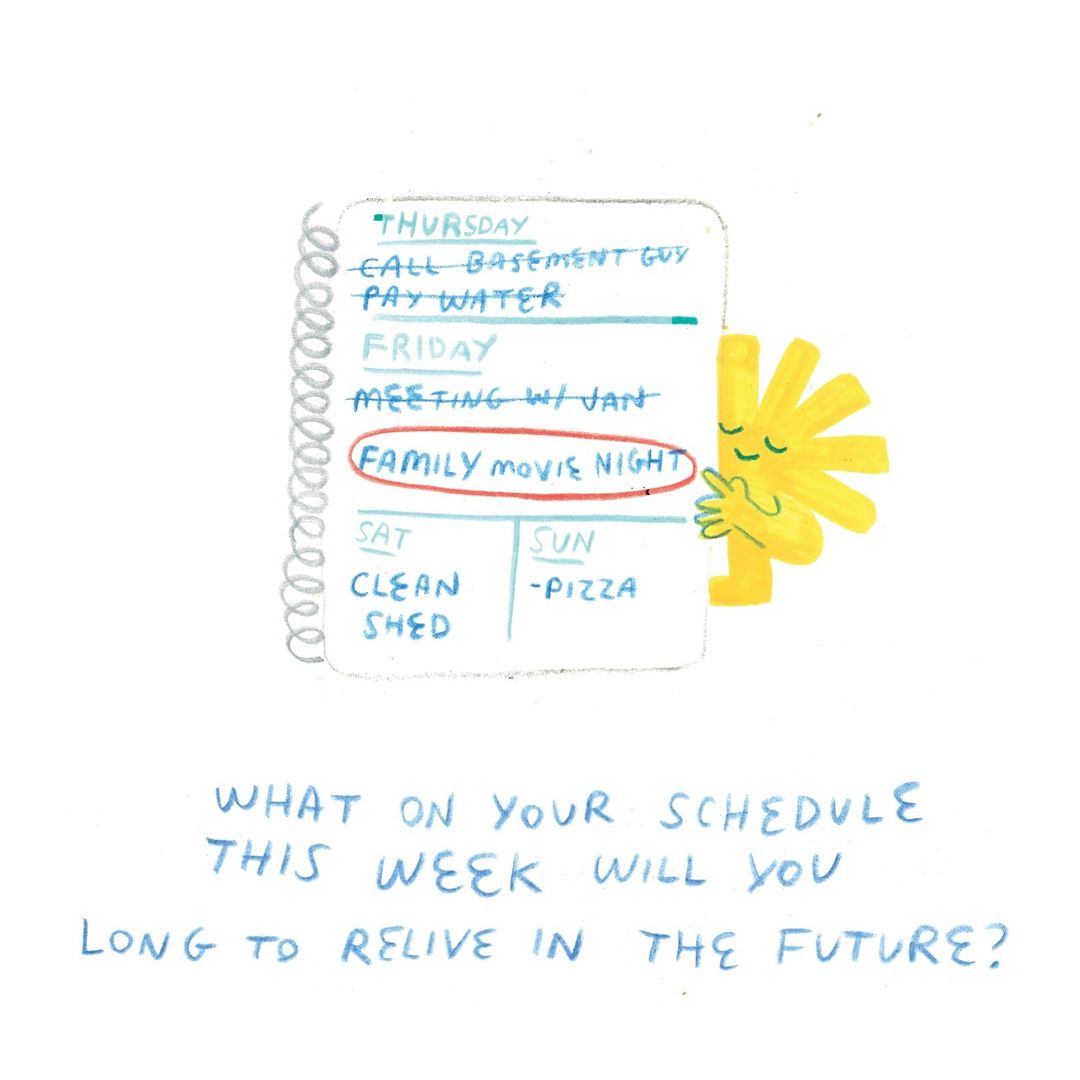 THURSDAY
CALL BASEMENT GUY
PAY WATER
FRIDAY
MEETING W/ JAN
FAMILY MOVIE NIGHT
SAT
CLEAN
SHED
SUN
-PIZZA
WHAT ON YOUR SCHEDULE
THIS WEEK WILL YOU
LONG TO RELIVE IN THE FUTURE?